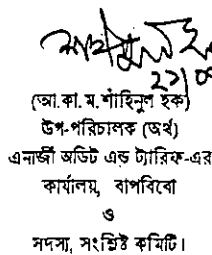 ২১/০
(আ.কা.ম.শাহিনুল হক)
উপ-পরিচালক (অর্থ)
এনার্জী অডিট এন্ড ট্যারিফ-এর
কার্যালয়, বাপবিবো
ও
সদস্য, সংশ্লিষ্ট কমিটি।